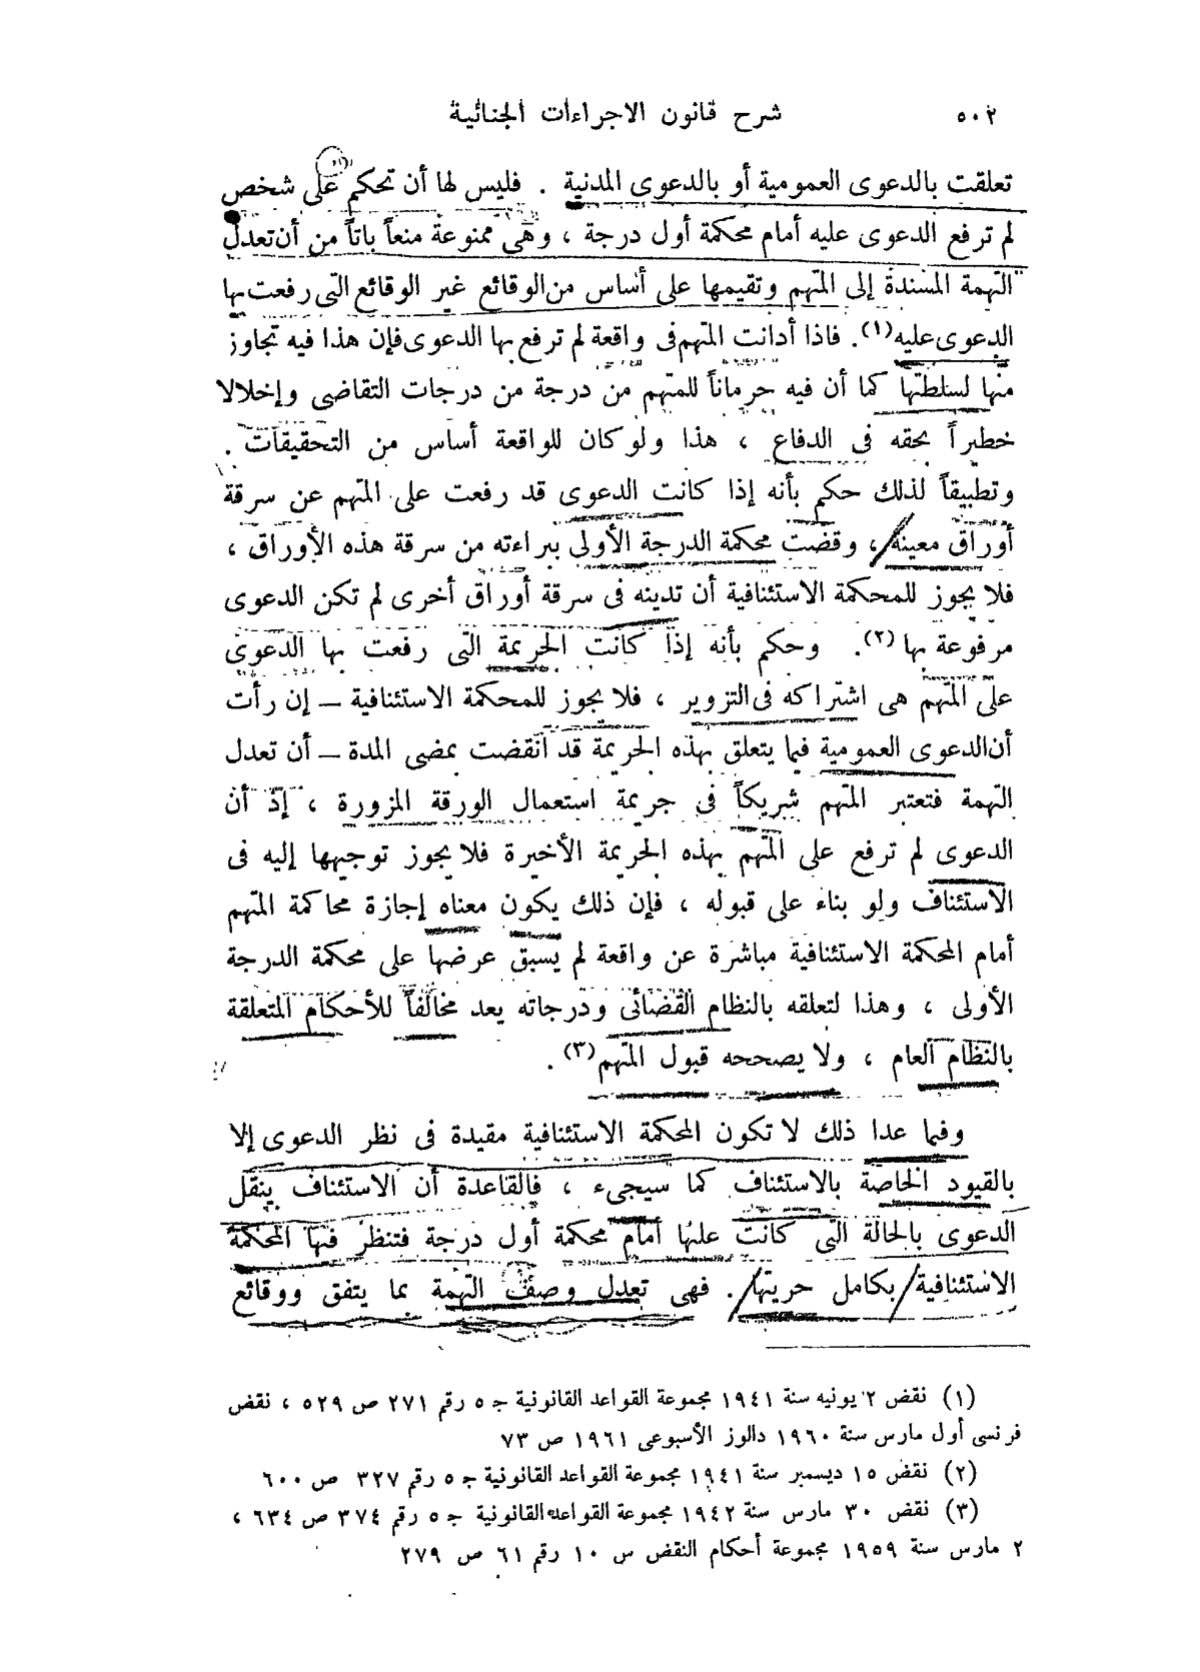 ٥٠٢
شرح قانون الاجراءات الجنائية
تعلقت بالدعوى العمومية أو بالدعوى المدنية . فليس لها أن تحكم على شخص
لم ترفع الدعوى عليه أمام محكمة أول درجة ، وهى ممنوعة منعاً باتاً من أن تعدل
التهمة المسندة إلى المتهم وتقيمها على أساس من الوقائع غير الوقائع التى رفعت بها
الدعوى عليه (١). فاذا أدانت المتهم فى واقعة لم ترفع بها الدعوى فإن هذا فيه تجاوز
منها لسلطتها كما أن فيه حرماناً للمتهم من درجة من درجات التقاضى وإخلالا
خطيراً بحقه فى الدفاع ، هذا ولو كان للواقعة أساس من التحقيقات .
وتطبيقاً لذلك حكم بأنه إذا كانت الدعوى قد رفعت على المتهم عن سرقة
أوراق معينة ، وقضت محكمة الدرجة الأولى ببراءته من سرقة هذه الأوراق ،
فلا يجوز للمحكمة الاستئنافية أن تدينه فى سرقة أوراق أخرى لم تكن الدعوى
مرفوعة بها (٢). وحكم بأنه إذا كانت الجريمة التى رفعت بها الدعوى
على المتهم هى اشتراكه فى التزوير ، فلا يجوز للمحكمة الاستئنافية – إن رأت
أن الدعوى العمومية فيما يتعلق بهذه الجريمة قد انقضت بمضى المدة – أن تعدل
التهمة فتعتبر المتهم شريكاً فى جريمة استعمال الورقة المزورة ، إذ أن
الدعوى لم ترفع على المتهم بهذه الجريمة الأخيرة فلا يجوز توجيهها إليه فى
الاستئناف ولو بناء على قبوله ، فإن ذلك يكون معناه إجازة محاكمة المتهم
أمام المحكمة الاستئنافية مباشرة عن واقعة لم يسبق عرضها على محكمة الدرجة
الأولى ، وهذا لتعلقه بالنظام القضائى ودرجاته يعد مخالفاً للأحكام المتعلقة
بالنظام العام ، ولا يصححه قبول المتهم (٣) .
وفيما عدا ذلك لا تكون المحكمة الاستئنافية مقيدة فى نظر الدعوى إلا
بالقيود الخاصة بالاستئناف كما سيجىء ، فالقاعدة أن الاستئناف ينقل
الدعوى بالحالة التى كانت عليها أمام محكمة أول درجة فتنظر فيها المحكمة
الاستئنافية بكامل حريتها . فهى تعدل وصف التهمة بما يتفق ووقائع
(١) نقض ٢ يونيه سنة ١٩٤١ مجموعة القواعد القانونية جـ ٥ رقم ٢٧١ ص ٥٢٩ ، نقض
فرنسى أول مارس سنة ١٩٦٠ دالوز الأسبوعى ١٩٦١ ص ٧٣
(٢) نقض ١٥ ديسمبر سنة ١٩٤١ مجموعة القواعد القانونية جـ ٥ رقم ٣٢٧ ص ٦٠٠
(٣) نقض ٣٠ مارس سنة ١٩٤٢ مجموعة القواعد القانونية جـ ٥ رقم ٣٧٤ ص ٦٣٤ ،
٢ مارس سنة ١٩٥٩ مجموعة أحكام النقض س ١٠ رقم ٦١ ص ٢٧٩